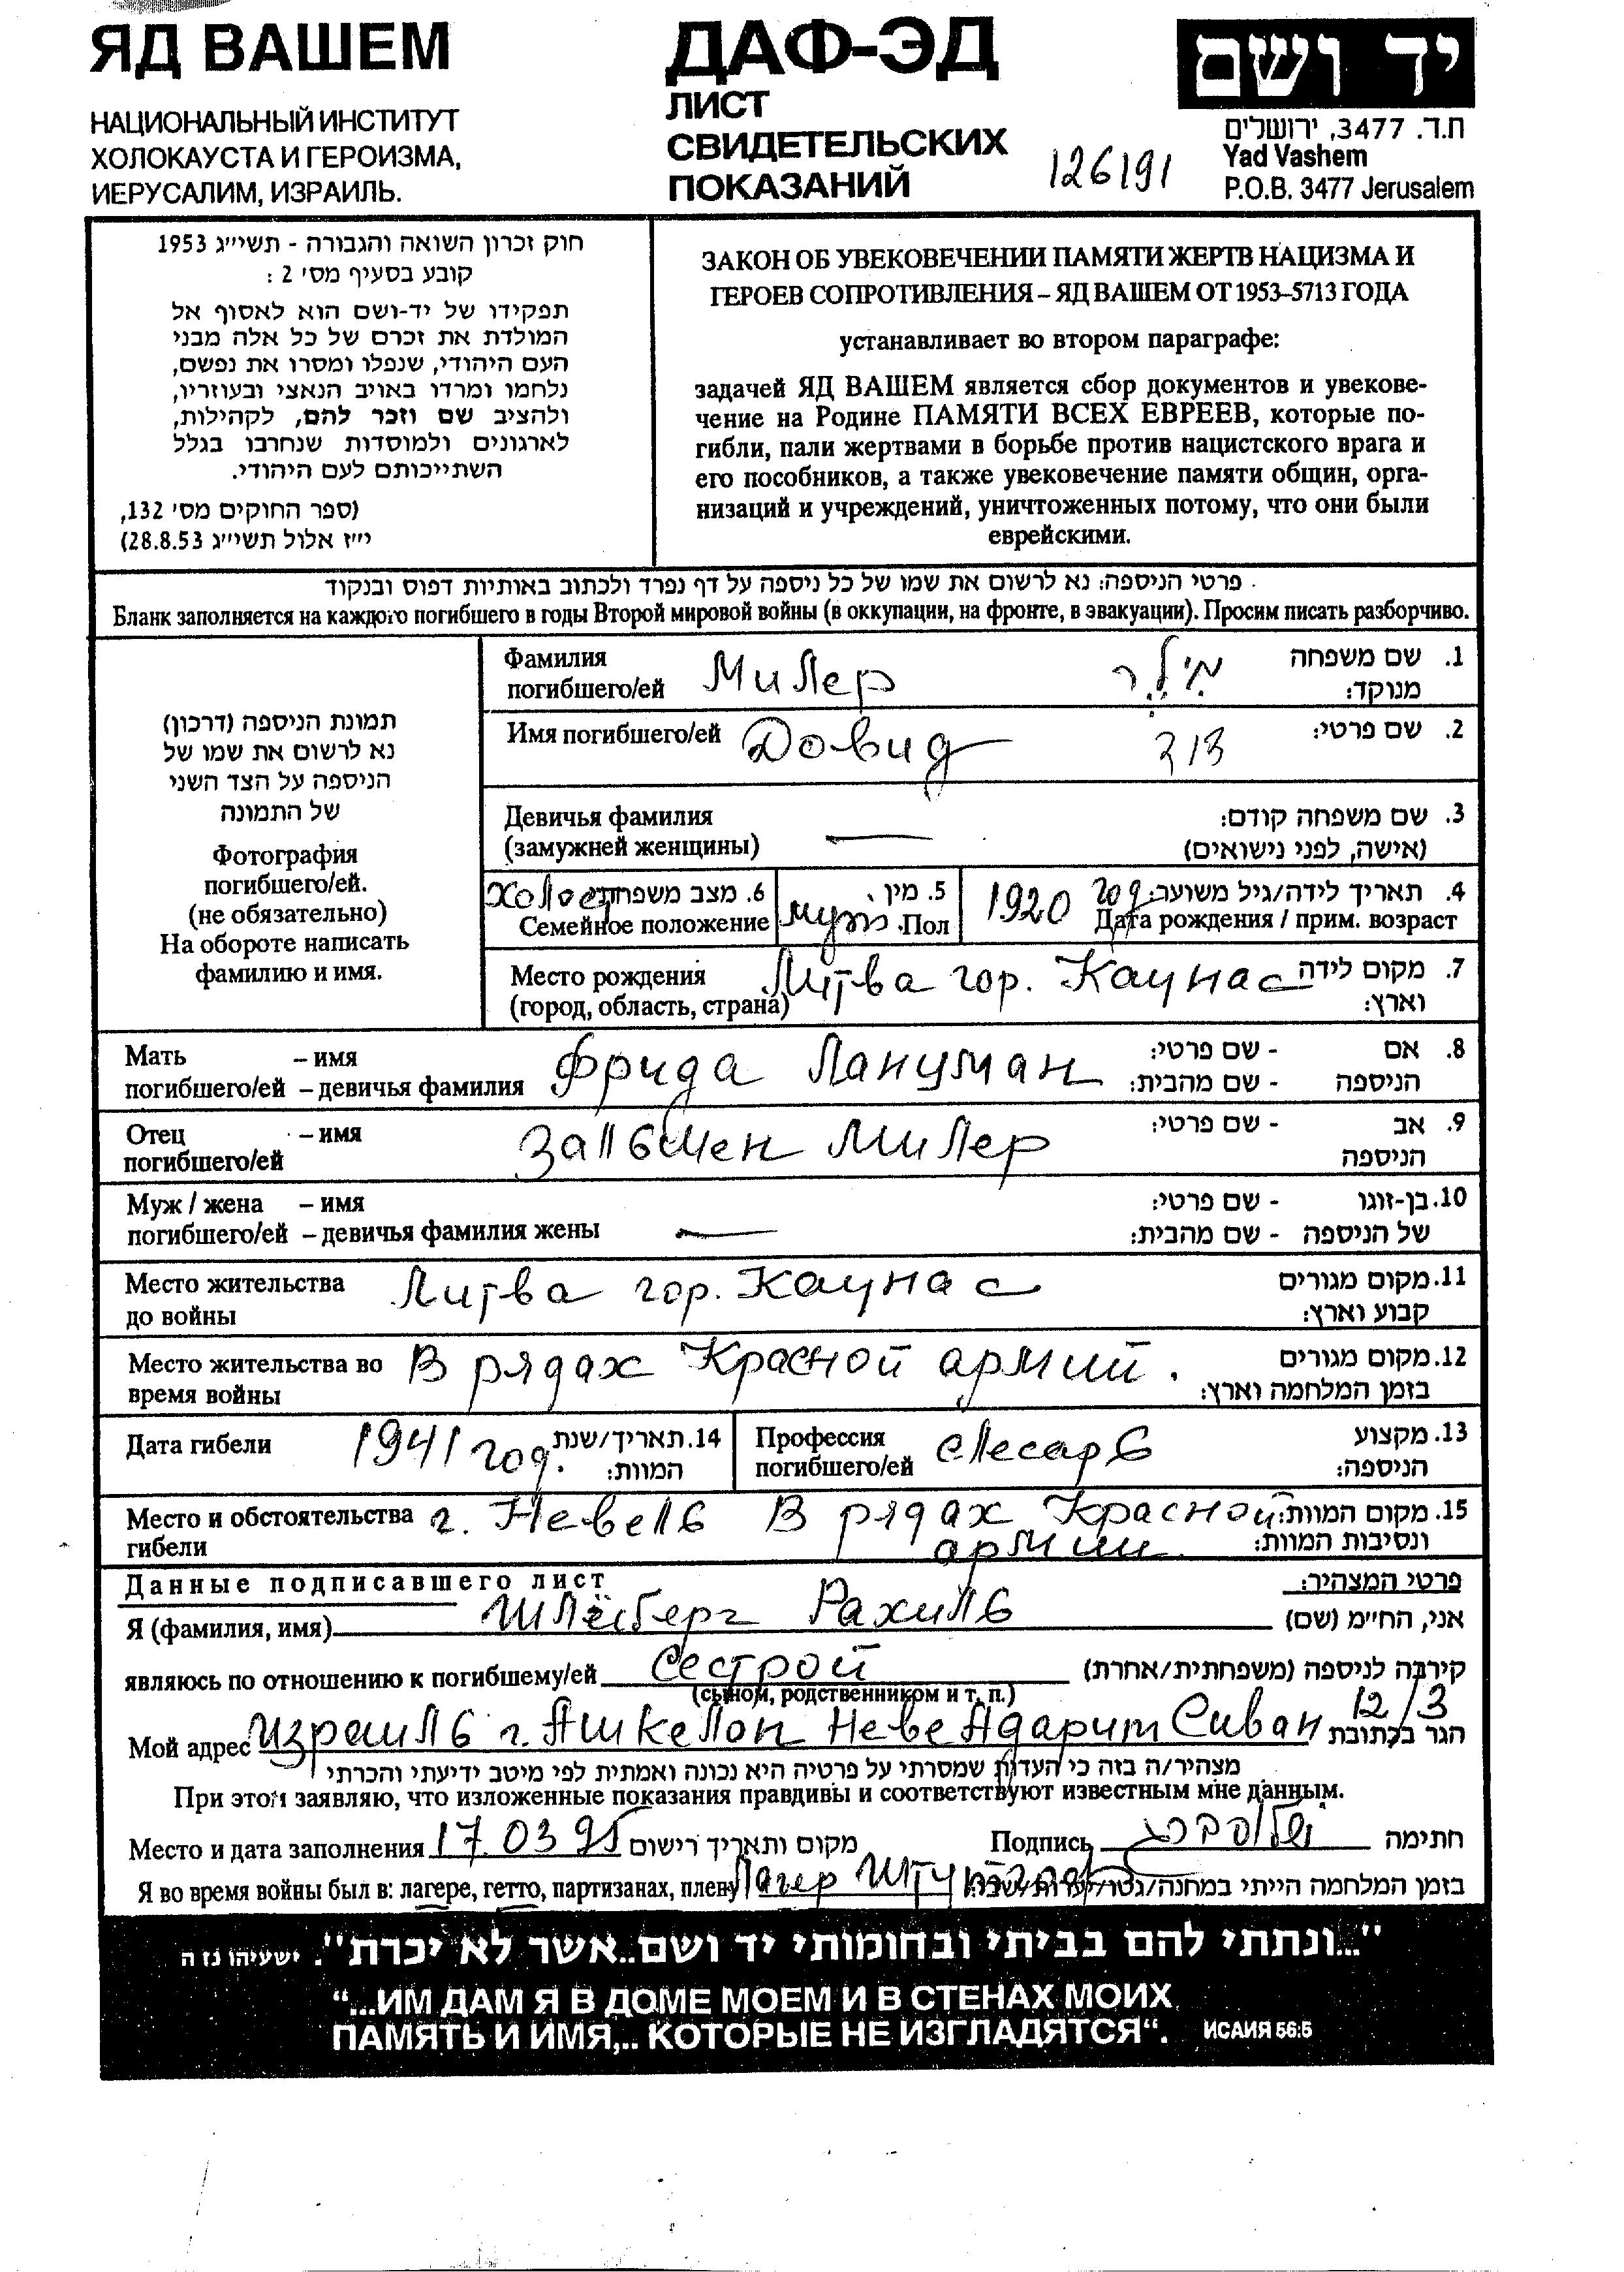 ЯД ВАШЕМ
НАЦИОНАЛЬНЫЙ ИНСТИТУТ
ХОЛОКАУСТА И ГЕРОИЗМА,
ИЕРУСАЛИМ, ИЗРАИЛЬ.
ДАФ-ЭД
ЛИСТ
СВИДЕТЕЛЬСКИХ
ПОКАЗАНИЙ
126191
יד ושם
ת.ד. 3477, ירושלים
Yad Vashem
P.O.B. 3477 Jerusalem
חוק זכרון השואה והגבורה - תשי״ג 1953
קובע בסעיף מס׳ 2 :
תפקידו של יד-ושם הוא לאסוף אל
המולדת את זכרם של כל אלה מבני
העם היהודי, שנפלו ומסרו את נפשם,
נלחמו ומרדו באויב הנאצי ובעוזריו,
ולהציב שם וזכר להם, לקהילות,
לארגונים ולמוסדות שנחרבו בגלל
השתייכותם לעם היהודי.
(ספר החוקים מס׳ 132,
י״ז אלול תשי״ג 28.8.53)
ЗАКОН ОБ УВЕКОВЕЧЕНИИ ПАМЯТИ ЖЕРТВ НАЦИЗМА И
ГЕРОЕВ СОПРОТИВЛЕНИЯ – ЯД ВАШЕМ ОТ 1953–5713 ГОДА
устанавливает во втором параграфе:
задачей ЯД ВАШЕМ является сбор документов и увекове-
чение на Родине ПАМЯТИ ВСЕХ ЕВРЕЕВ, которые по-
гибли, пали жертвами в борьбе против нацистского врага и
его пособников, а также увековечение памяти общин, орга-
низаций и учреждений, уничтоженных потому, что они были
еврейскими.
פרטי הניספה: נא לרשום את שמו של כל ניספה על דף נפרד ולכתוב באותיות דפוס ובנקוד
Бланк заполняется на каждого погибшего в годы Второй мировой войны (в оккупации, на фронте, в эвакуации). Просим писать разборчиво.
תמונת הניספה (דרכון)
נא לרשום את שמו של
הניספה על הצד השני
של התמונה
Фотография
погибшего/ей.
(не обязательно)
На обороте написать
фамилию и имя.
Фамилия Милер מילר 1. שם משפחה
погибшего/ей מנוקד:
Имя погибшего/ей Довид דוד 2. שם פרטי:
Девичья фамилия — 3. שם משפחה קודם:
(замужней женщины) (אישה, לפני נישואים)
холост 6. מצב משפחתי
Семейное положение
5. מין
муж. Пол
1920 год 4. תאריך לידה/גיל משוער:
Дата рождения / прим. возраст
Место рождения Литва гор. Каунас 7. מקום לידה
(город, область, страна) וארץ:
Мать – имя Фрида Лануман 8. אם - שם פרטי:
погибшего/ей – девичья фамилия הניספה - שם מהבית:
Отец – имя Залвмен Милер 9. אב - שם פרטי:
погибшего/ей הניספה
Муж / жена – имя 10. בן-זוגו - שם פרטי:
погибшего/ей – девичья фамилия жены — של הניספה - שם מהבית:
Место жительства Литва гор. Каунас 11. מקום מגורים
до войны קבוע וארץ:
Место жительства во В рядах Красной армий. 12. מקום מגורים
время войны בזמן המלחמה וארץ:
Дата гибели 1941 год. 14. תאריך/שנת
המוות:
Профессия слесарь 13. מקצוע
погибшего/ей הניספה:
Место и обстоятельства г. Невель В рядах Красной 15. מקום המוות:
гибели армии ונסיבות המוות:
Данные подписавшего лист פרטי המצהיר:
Я (фамилия, имя) Шлёсберг Рахиль אני, הח״מ (שם)
являюсь по отношению к погибшему/ей Сестрой קירבה לניספה (משפחתית/אחרת)
(сыном, родственником и т. п.)
12/3
Мой адрес Израиль г. Ашкелон Неве Адарим Сиван הגר בכתובת
מצהיר/ה בזה כי העדות שמסרתי על פרטיה היא נכונה ואמתית לפי מיטב ידיעתי והכרתי
При этом заявляю, что изложенные показания правдивы и соответствуют известным мне данным.
Место и дата заполнения 17.03 95 מקום ותאריך רישום Подпись שלוסברג חתימה
Я во время войны был в: лагере, гетто, партизанах, плену Лагер בזמן המלחמה הייתי במחנה/גטו/
"...ונתתי להם בביתי ובחומותי יד ושם..אשר לא יכרת". ישעיהו נו ה
“...ИМ ДАМ Я В ДОМЕ МОЕМ И В СТЕНАХ МОИХ
ПАМЯТЬ И ИМЯ,.. КОТОРЫЕ НЕ ИЗГЛАДЯТСЯ“. ИСАИЯ 56:5